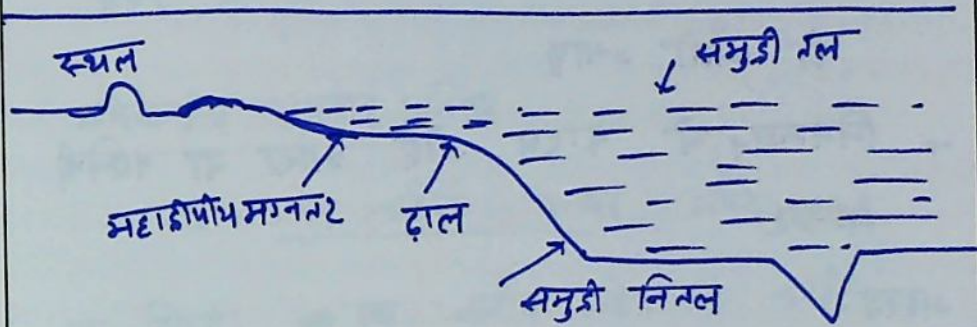 स्थल
समुद्री तल
महाद्वीपीय मग्नतट
ढ़ाल
समुद्री नितल